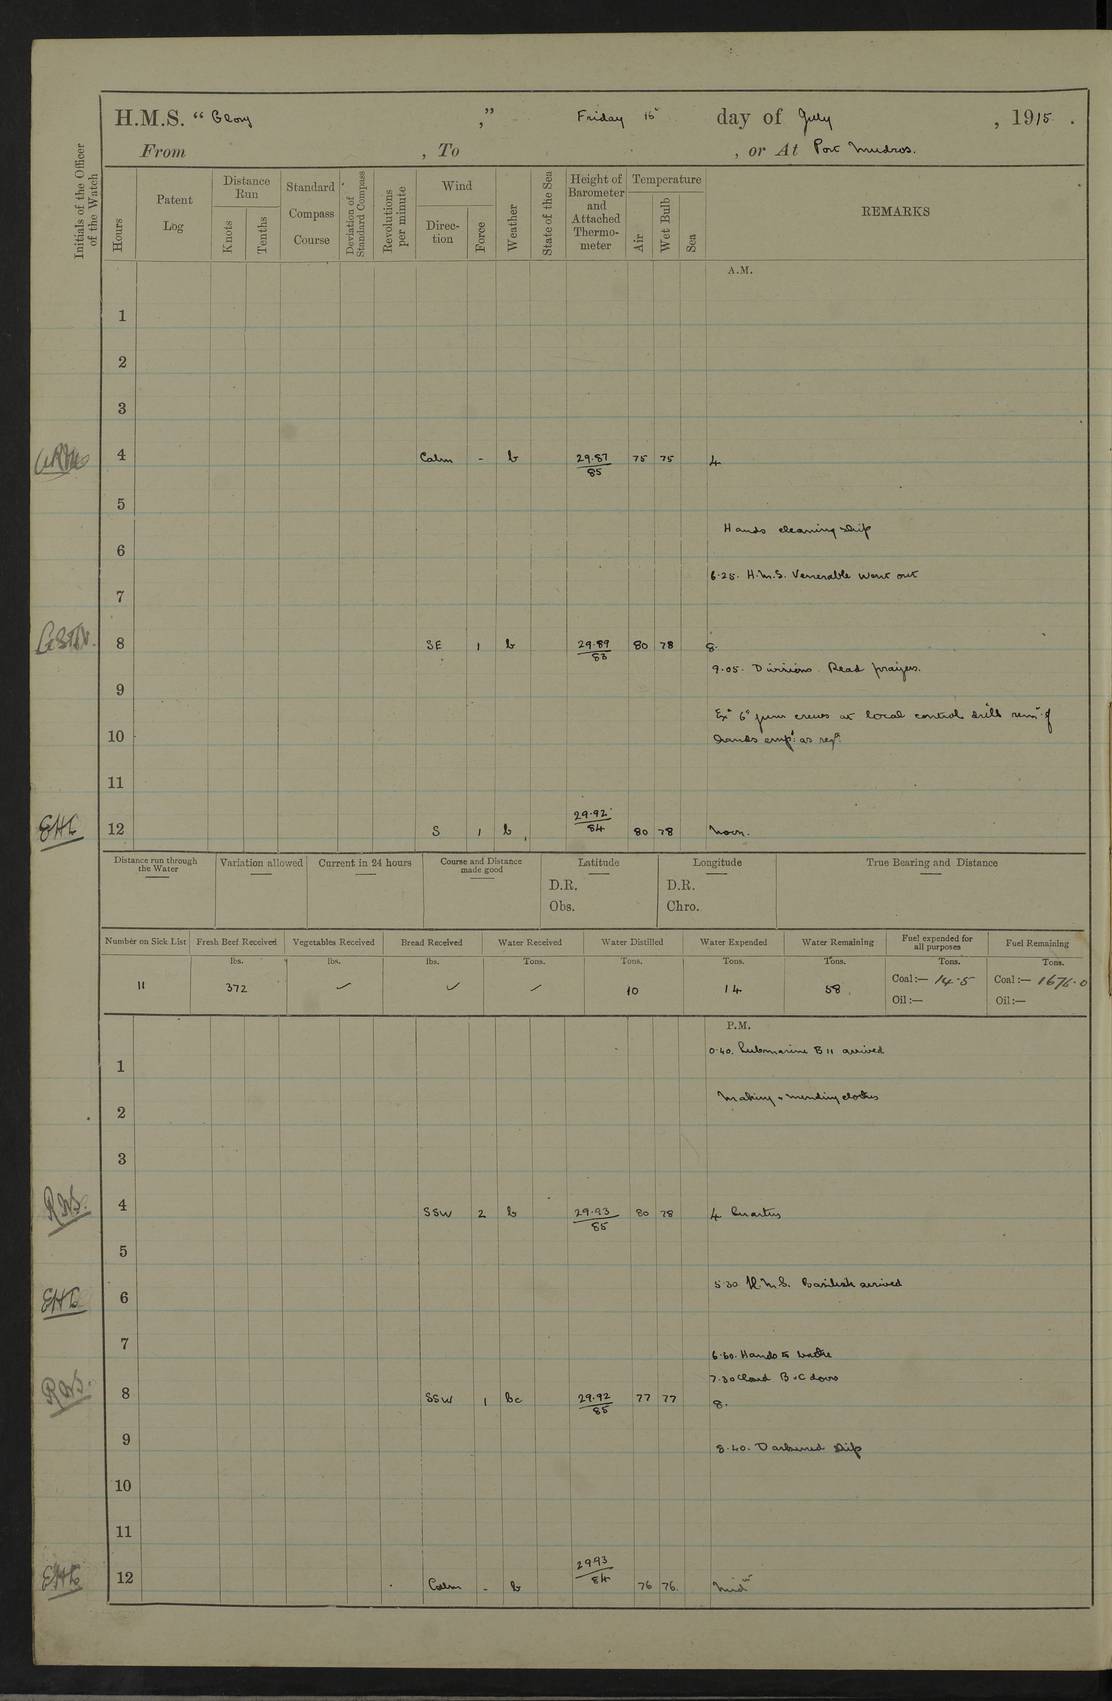 H.M.S. " Glory ," Friday 16 day of July , 1915 .
From , To , or At Port Mudros.
Initials of the Officer of the Watch
Hours
Patent Log
Distance Run
Knots
Tenths
Standard Compass Course
Deviation of Standard Compass
Revolutions per minute
Wind
Direction
Force
Weather
State of the Sea
Height of Barometer and Attached Thermometer
Temperature
Air
Wet Bulb
Sea
REMARKS
A.M.
1
2
3
4 Calm - b 29.87/85 75 75 4
5
Hands cleaning ship
6
6.25. H.M.S. Venerable went out
7
8 SE 1 b 29.89/83 80 78 8.
9.05. Divisions. Read prayers.
9
6" gun crews at local control drill rem.r of
10 hands emp.d as req.d
11
EHL 12 S 1 b 29.92/84 80 78 Noon.
Distance run through the Water
Variation allowed
Current in 24 hours
Course and Distance made good
Latitude
D.R.
Obs.
Longitude
D.R.
Chro.
True Bearing and Distance
Number on Sick List
Fresh Beef Received
Vegetables Received
Bread Received
Water Received
Water Distilled
Water Expended
Water Remaining
Fuel expended for all purposes
Fuel Remaining
lbs. lbs. lbs. Tons. Tons. Tons. Tons. Tons. Tons.
11 372 ✓ ✓ ✓ 10 14 58 Coal:— 14.5 Coal:— 1676.0
Oil:— Oil:—
P.M.
0.40. Submarine B 11 arrived
1
Making & mending clothes
2
3
4 SSW 2 b 29.93/85 80 78 4 Quarters
5
5.30 H.M.S. Basilisk arrived
EHL 6
7
Hands to bathe
7.30 Closed B & C doors
8 SSW 1 bc 29.92/85 77 77 8.
9 8.40. Darkened ship
10
11
EHL 12 Calm - b 29.93/84 76 76 Midt